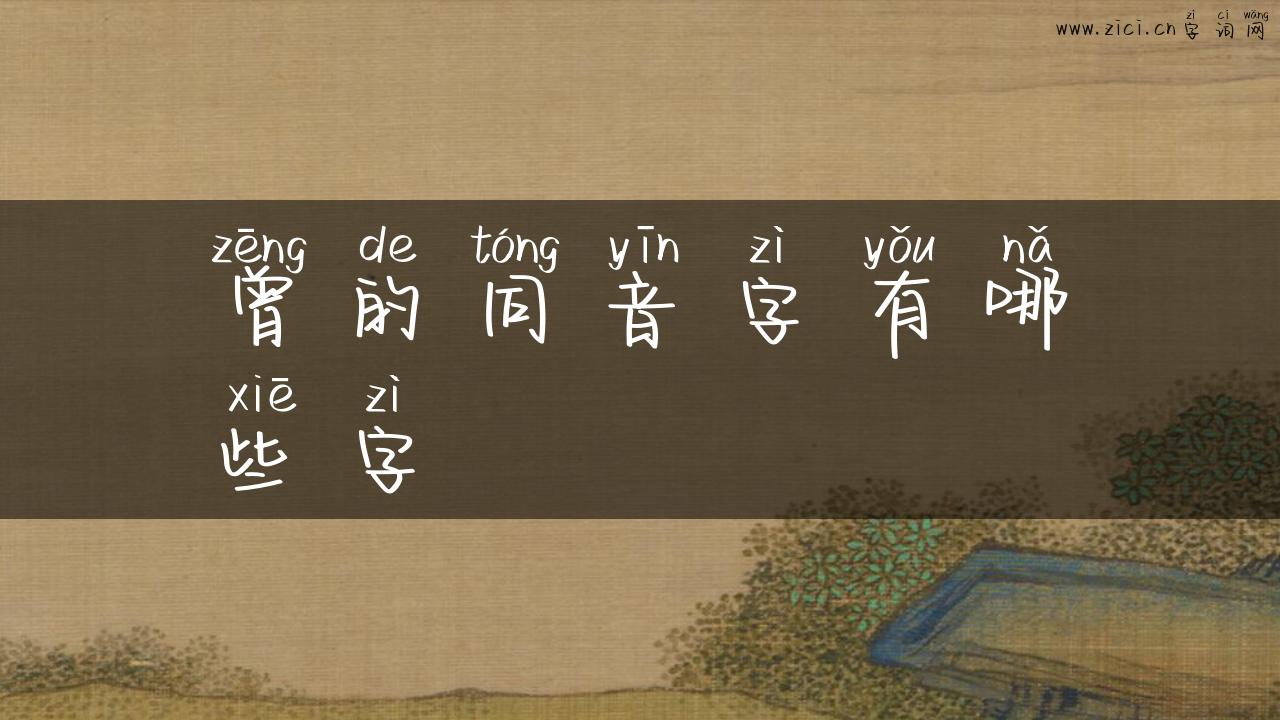 zì cí wǎng
www.zici.cn 字词网
zēng de tóng yīn zì yǒu nǎ
曾的同音字有哪
xiē zì
些字